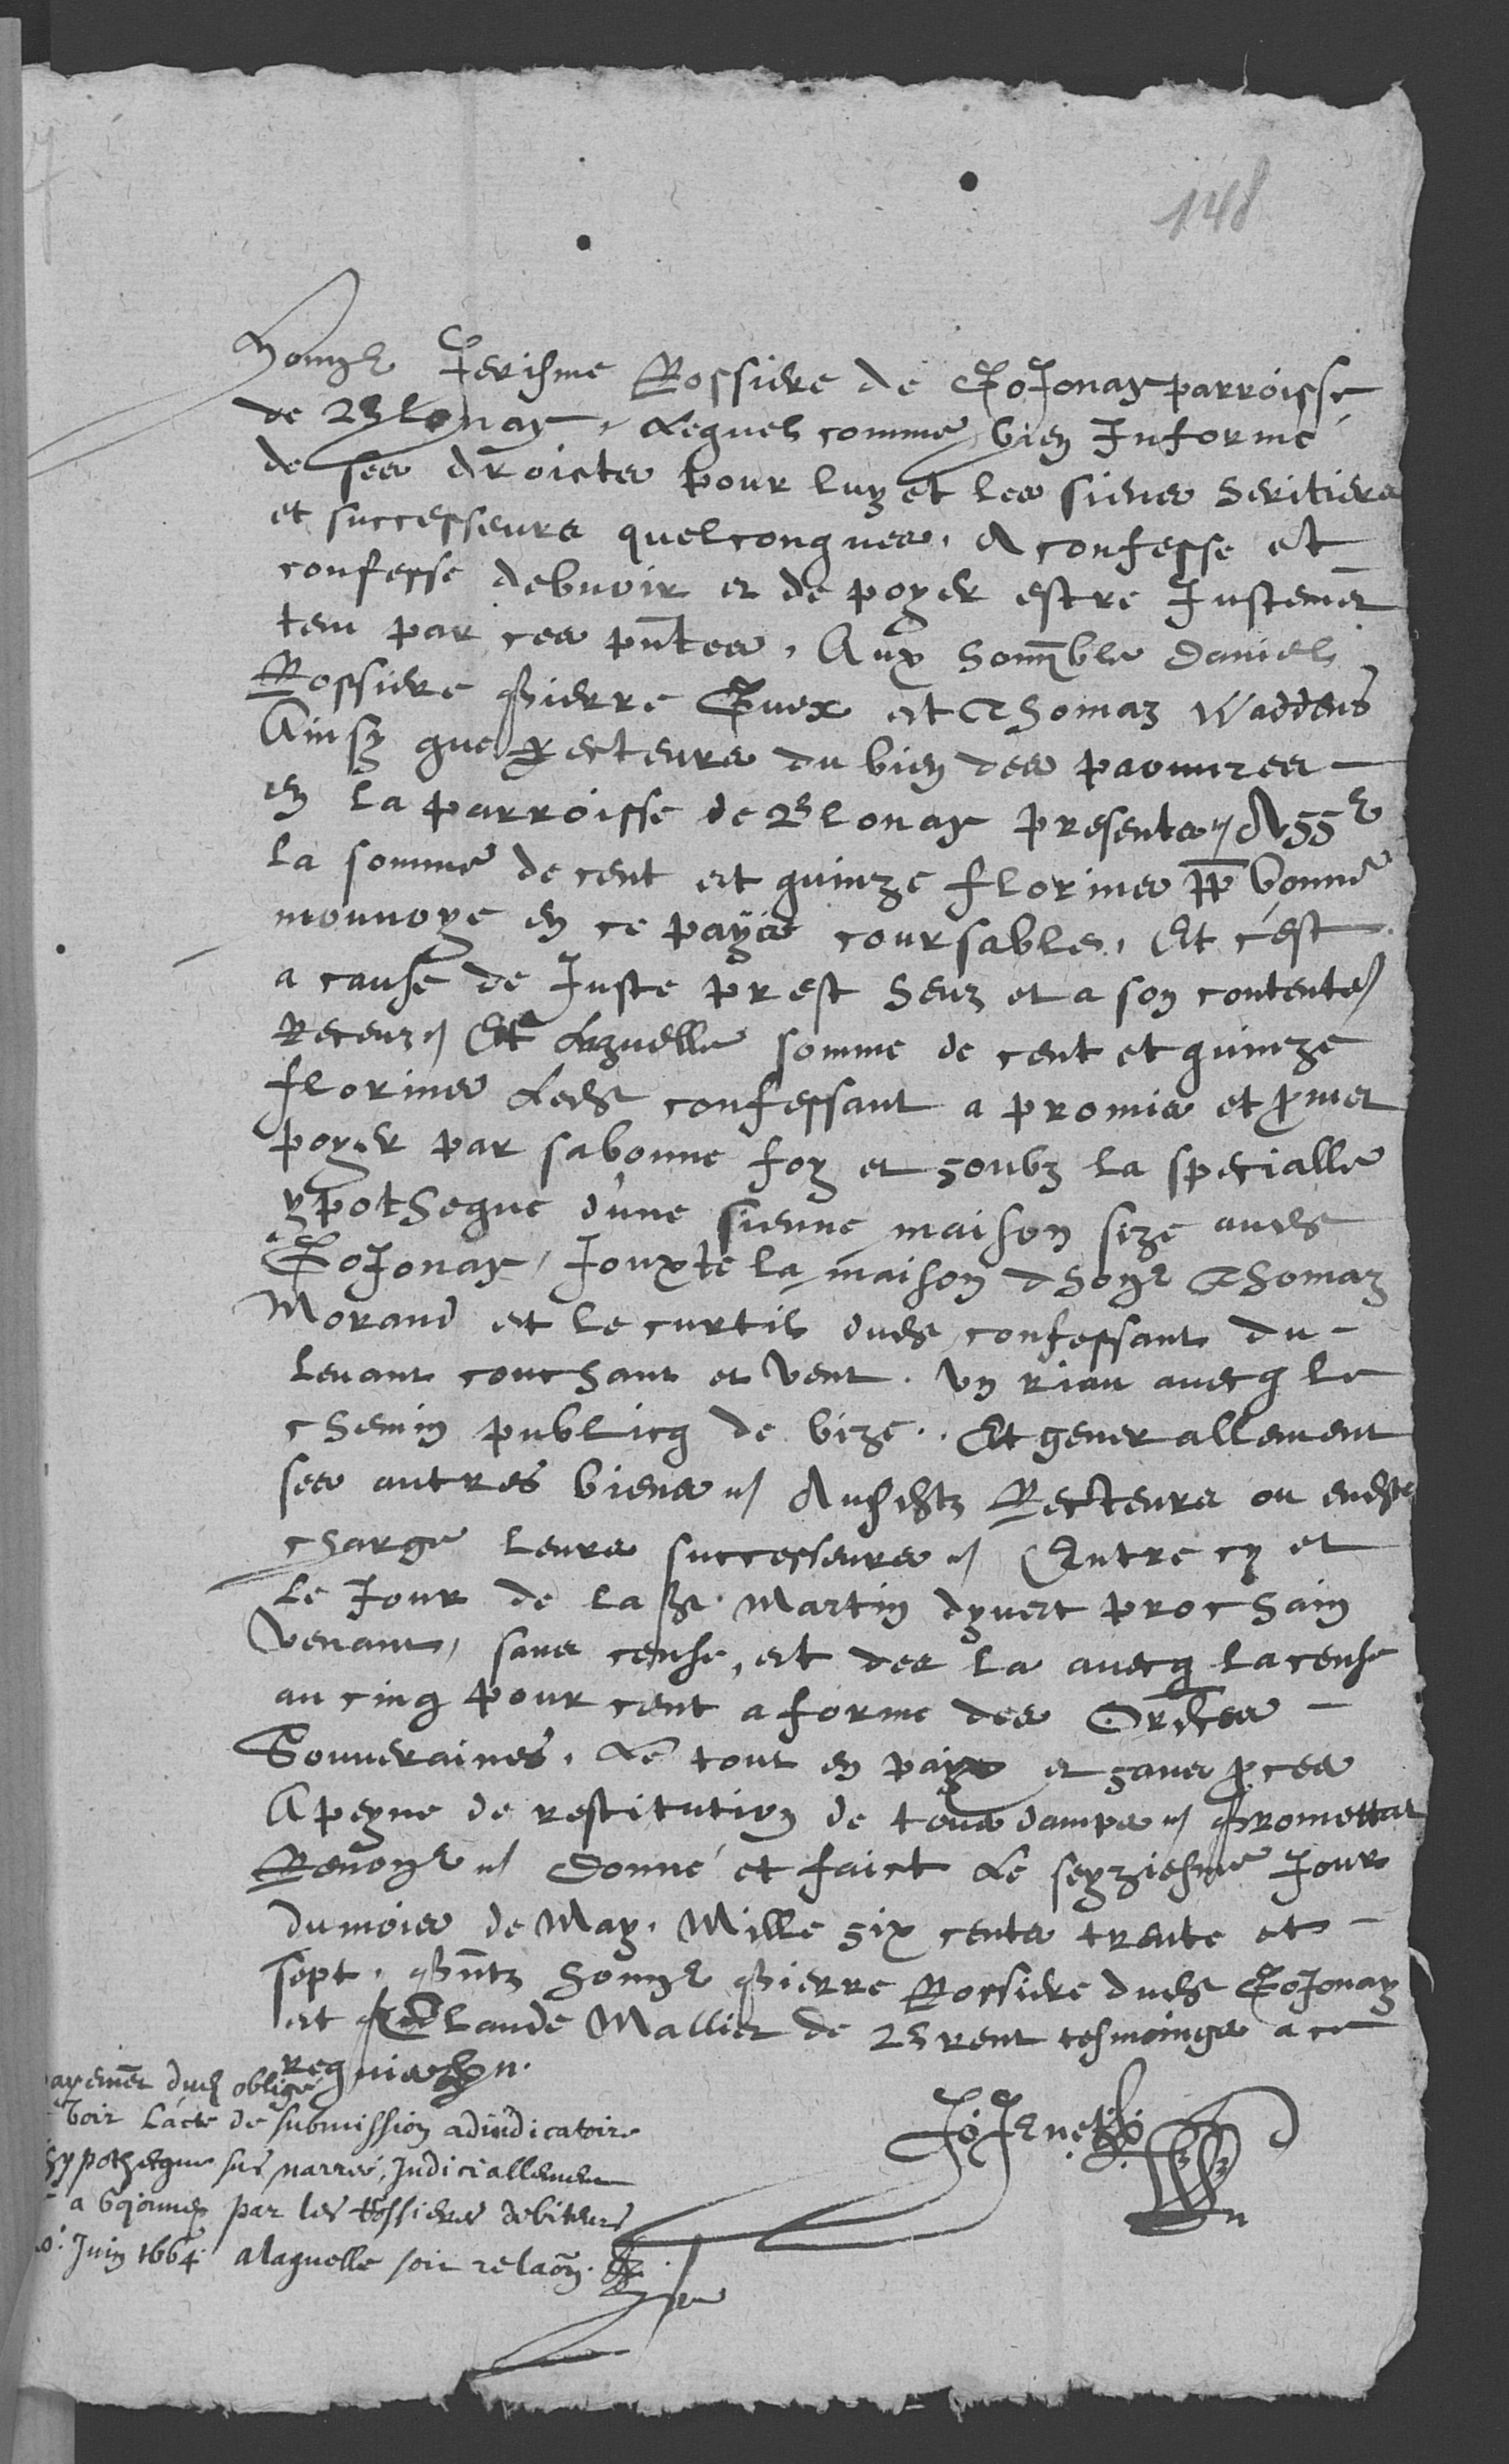 148
Honn^e Jerisme Rossiere de Cojonay parroisse
de Blonay, Lequel comme bien Informé
de ses droictz pour luy et les siens heritiers
et successeurs quelconques. A confesse et
confesse debuoir et de poyer estre Justemēt
tenu par ces pn̄tes. Aux honn̄ble Daniel
Rossiere Pierre Guex et Thomaz Waddens
Ainsy que Recteurs du bien des paouures
en la parroisse de Blonay presentz
la somme de cent et quinze florins pp bonne
monnoye en ce payis coursable. Et c'est
a cause de Juste prest heuz et a son contente
Receuz Et Laquelle somme de cent et quinze
florins Ledt confessant a promis et pmet
poyer par sa bonne foy et soubz la specialle
ypotheque d'une sienne maison size audt
Cojonay, Jouxte la maison dhone Thomaz
Morand et le curtil dudt confessant du
leuant couchant et vent. Vn riau auecq le
chemin publicq de bize. Et generallement
ses autres biens Ausdtz Recteurs ou en
charge leurs successeurs Entre cy et
le Jour de la St Martin dyuert prochain
venant, sans cense, et des la auecq la cense
au cinq pour cent a forme des Ordces
Souueraines. Le tout en paix et sans pces
A peyne de restitution de tous damps Promettat
Renone Donné et faict Le seyziesme Jour
du mois de May. Mille six centz trente et
sept. Pn̄tz honne Pierre Rossiere dudt Cojonay
et Claude Mallict de Brent tesmoings a ce
requis
payemēt dud oblige
voir L'acte de submission adiudicatoire
hypotheque sus narré, Judiciallement
a par les Rossieres debiteurs
Juin 1664 a laquelle soit relaōn.